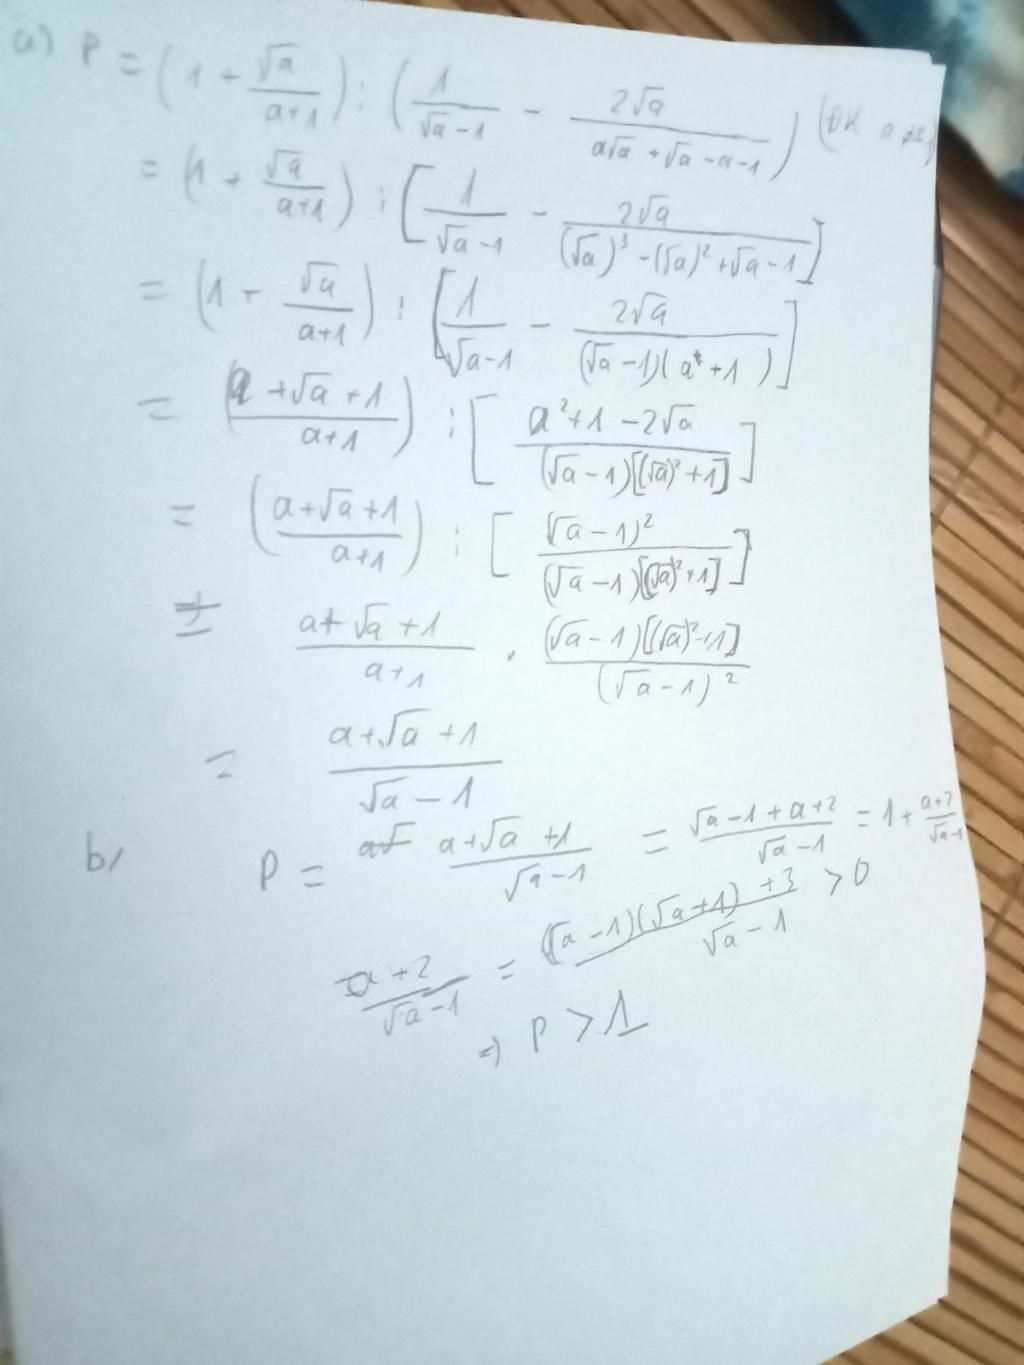 a) P = (1 + √a/(a+1)) : (1/(√a-1) - 2√a/(a√a + √a - a - 1)) (ĐK
= (1 + √a/(a+1)) : [1/(√a-1) - 2√a/((√a)³ - (√a)² + √a - 1)]
= (1 + √a/(a+1)) : [1/(√a-1) - 2√a/((√a-1)(a+1))]
= ((a+√a+1)/(a+1)) : [(a²+1-2√a)/((√a-1)[(√a)²+1])]
= ((a+√a+1)/(a+1)) : [(√a-1)²/((√a-1)[(√a)²+1])]
= (a+√a+1)/(a+1) . (√a-1)[(√a)²+1]/(√a-1)²
= (a+√a+1)/(√a-1)
b/ P = (a+√a+1)/(√a-1) = (√a-1+a+2)/(√a-1) = 1 + (a+2)/(√a-1)
(a+2)/(√a-1) = ((√a-1)(√a+1)+3)/(√a-1) > 0
=> P > 1